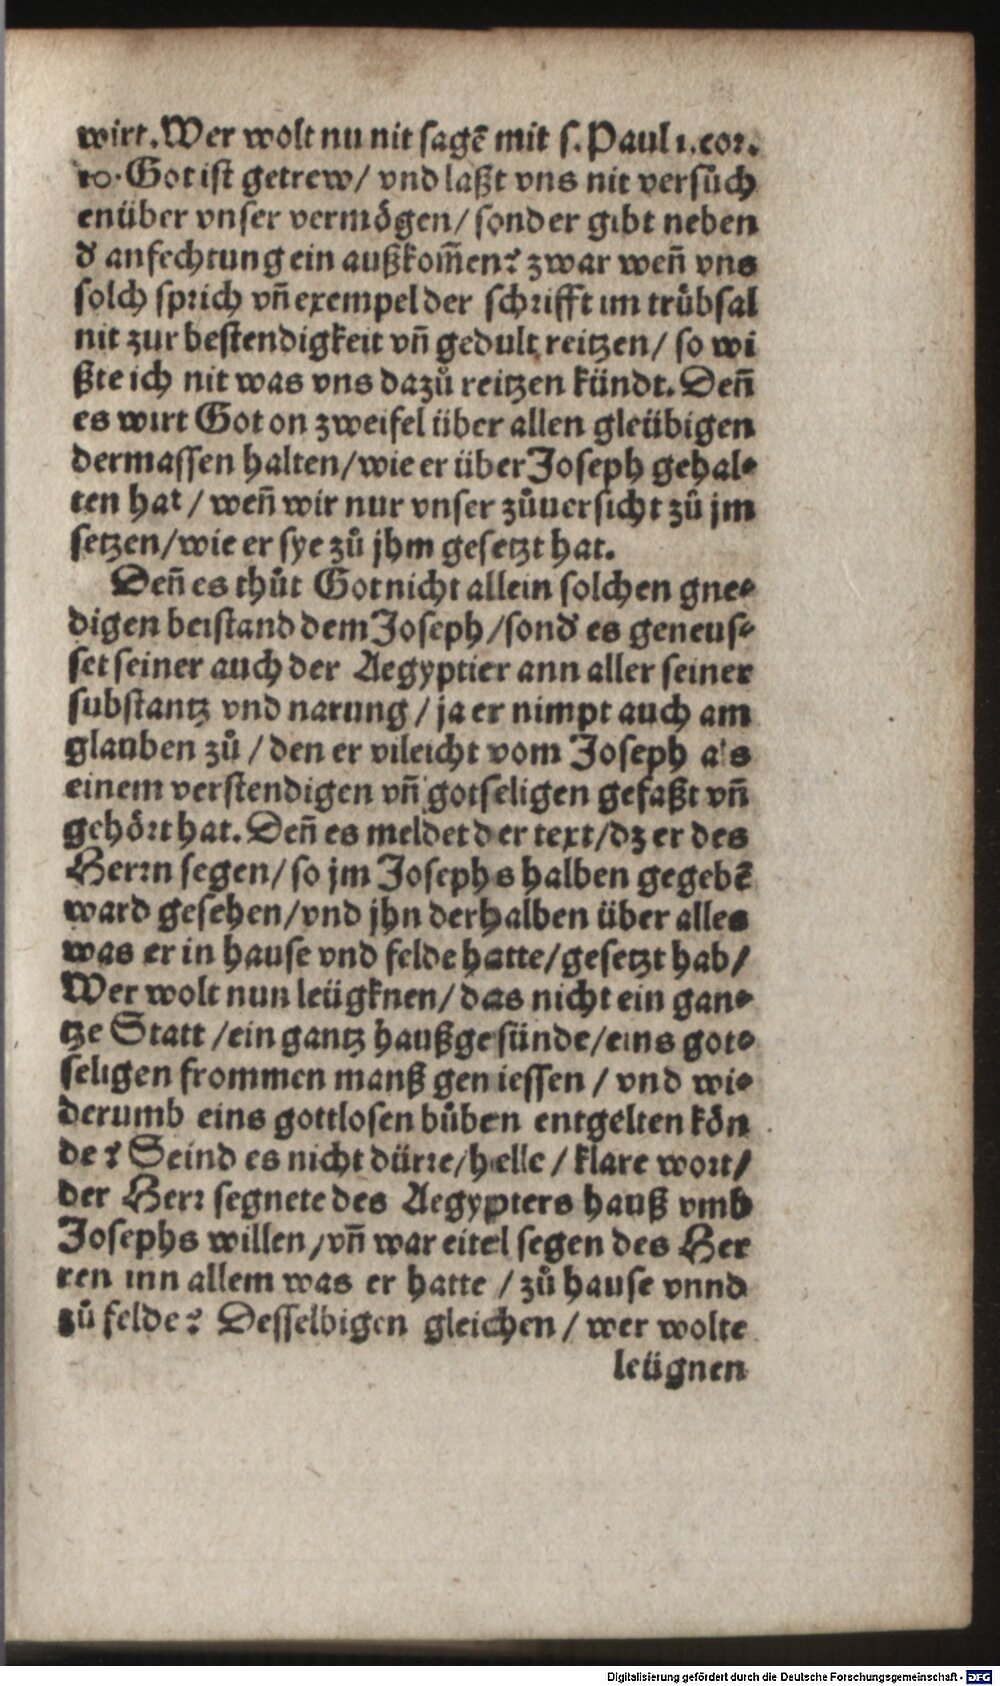 wirt. Wer wolt nu nit sagē mit s. Paul 1. cor.
10. Got ist getrew/ vnd laßt vns nit versůch
en über vnser vermögen/ sonder gibt neben
d' anfechtung ein außkom̄en? zwar wen̄ vns
solch sprich vn̄ exempel der schrifft im trůbsal
nit zur bestendigkeit vn̄ gedult reitzen/ so wi
ßte ich nit was vns dazů reitzen kündt. Den̄
es wirt Got on zweifel über allen gleübigen
dermassen halten/ wie er über Joseph gehal-
ten hat/ wen̄ wir nur vnser zůuersicht zů jm
setzen/ wie er sye zů jhm gesetzt hat.
Den̄ es thůt Got nicht allein solchen gne-
digen beistand dem Joseph/ sond' es geneus-
set seiner auch der Aegyptier ann aller seiner
substantz vnd narung/ ja er nimpt auch am
glauben zů/ den er vileicht vom Joseph als
einem verstendigen vn̄ gotseligen gefaßt vn̄
gehört hat. Den̄ es meldet der text/ dz er des
Herrn segen/ so jm Josephs halben gegebē
ward gesehen/ vnd jhn derhalben über alles
was er in hause vnd felde hatte/ gesetzt hab/
Wer wolt nun leügknen/ das nicht ein gan-
tze Statt/ ein gantz haußgesünde/ eins got-
seligen frommen manß geniessen/ vnd wi-
derumb eins gottlosen bůben entgelten kön
de? Seind es nicht dürre/ helle/ klare wort/
der Herr segnete des Aegypters hauß vmb
Josephs willen/ vn̄ war eitel segen des Her
ren inn allem was er hatte/ zů hause vnnd
zů felde? Desselbigen gleichen/ wer wolte
leügnen
Digitalisierung gefördert durch die Deutsche Forschungsgemeinschaft - DFG